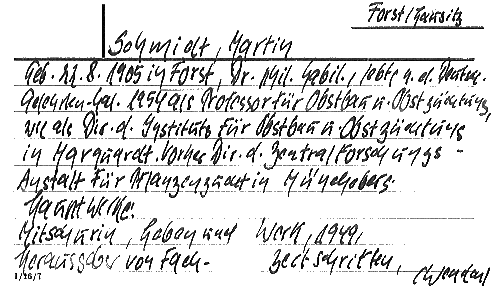 Forst/Lausitz
Schmidt, Martin
Geb. 22.8.1905 in Forst, Dr. phil. habil., lebte n. d. Deutsch.
Gelehrten-Kal. 1954 als Professor für Obstbau u. Obstzüchtung,
wie als Dir. d. Instituts für Obstbau u. Obstzüchtung
in Marquardt. Vorher Dir. d. Zentralforschungs-
Anstalt für Pflanzenzucht in Müncheberg.
Hauptwerke:
Mitschurin, Leben und Werk, 1949,
Herausgeber von Fach- zeitschriften,
1/26/7